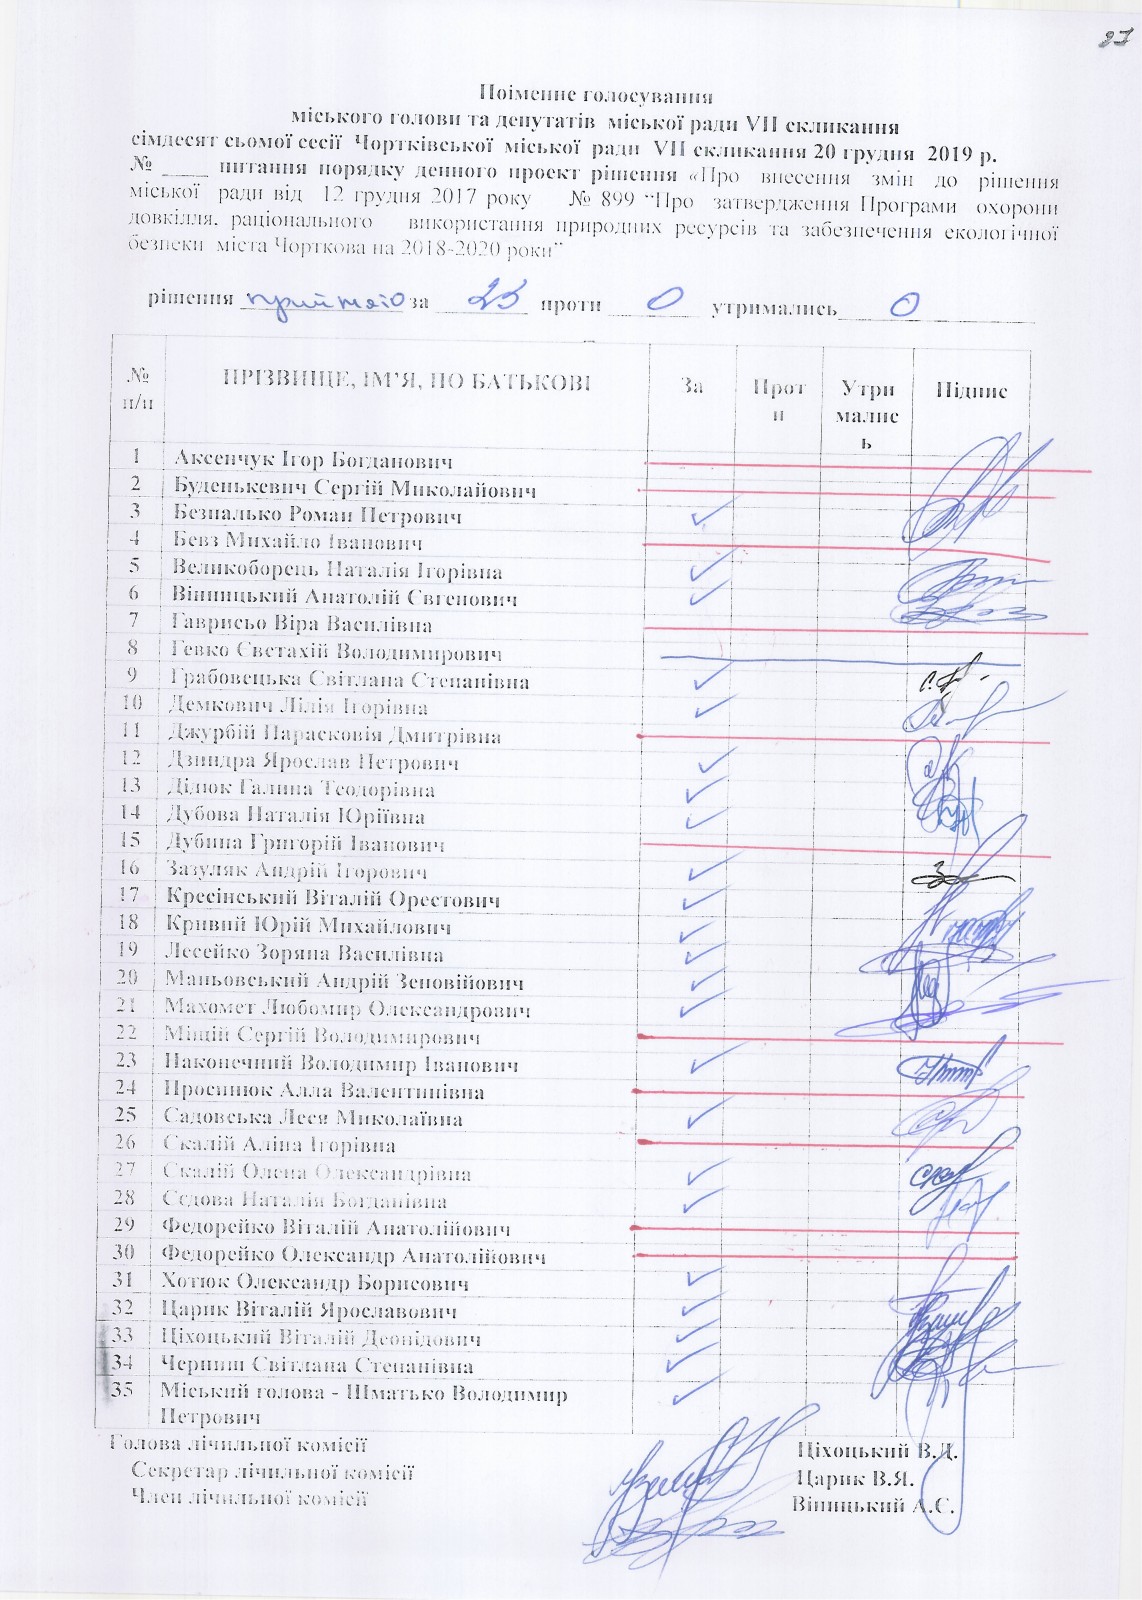 27
Поіменне голосування
міського голови та депутатів міської ради VII скликання
сімдесят сьомої сесії Чортківської міської ради VII скликання 20 грудня 2019 р.
№ ____ питання порядку денного проект рішення «Про внесення змін до рішення
міської ради від 12 грудня 2017 року № 899 "Про затвердження Програми охорони
довкілля, раціонального використання природних ресурсів та забезпечення екологічної
безпеки міста Чорткова на 2018-2020 роки"
рішення прийнято за 23 проти 0 утримались 0
№ п/п ПРІЗВИЩЕ, ІМ'Я, ПО БАТЬКОВІ За Проти Утрималися Підпис
1 Аксенчук Ігор Богданович
2 Буденькевич Сергій Миколайович
3 Безпалько Роман Петрович
4 Бевз Михайло Іванович
5 Великоборець Наталія Ігорівна
6 Вінницький Анатолій Євгенович
7 Гаврисьо Віра Василівна
8 Гевко Євстахій Володимирович
9 Грабовецька Світлана Степанівна
10 Демкович Лілія Ігорівна
11 Джурбій Парасковія Дмитрівна
12 Дзиндра Ярослав Петрович
13 Дідюк Галина Теодорівна
14 Дубова Наталія Юріївна
15 Дубина Григорій Іванович
16 Зазуляк Андрій Ігорович
17 Кресінський Віталій Орестович
18 Кривий Юрій Михайлович
19 Лесейко Зоряна Василівна
20 Маньовський Андрій Зеновійович
21 Махомет Любомир Олександрович
22 Міщій Сергій Володимирович
23 Наконечний Володимир Іванович
24 Просинюк Алла Валентинівна
25 Садовська Леся Миколаївна
26 Скалій Аліна Ігорівна
27 Скалій Олена Олександрівна
28 Сєдова Наталія Богданівна
29 Федорейко Віталій Анатолійович
30 Федорейко Олександр Анатолійович
31 Хотюк Олександр Борисович
32 Царик Віталій Ярославович
33 Ціхоцький Віталій Леонідович
34 Черниш Світлана Степанівна
35 Міський голова - Шматько Володимир
Петрович
Голова лічильної комісії Ціхоцький В.Л.
Секретар лічильної комісії Царик В.Я.
Член лічильної комісії Вінницький А.Є.